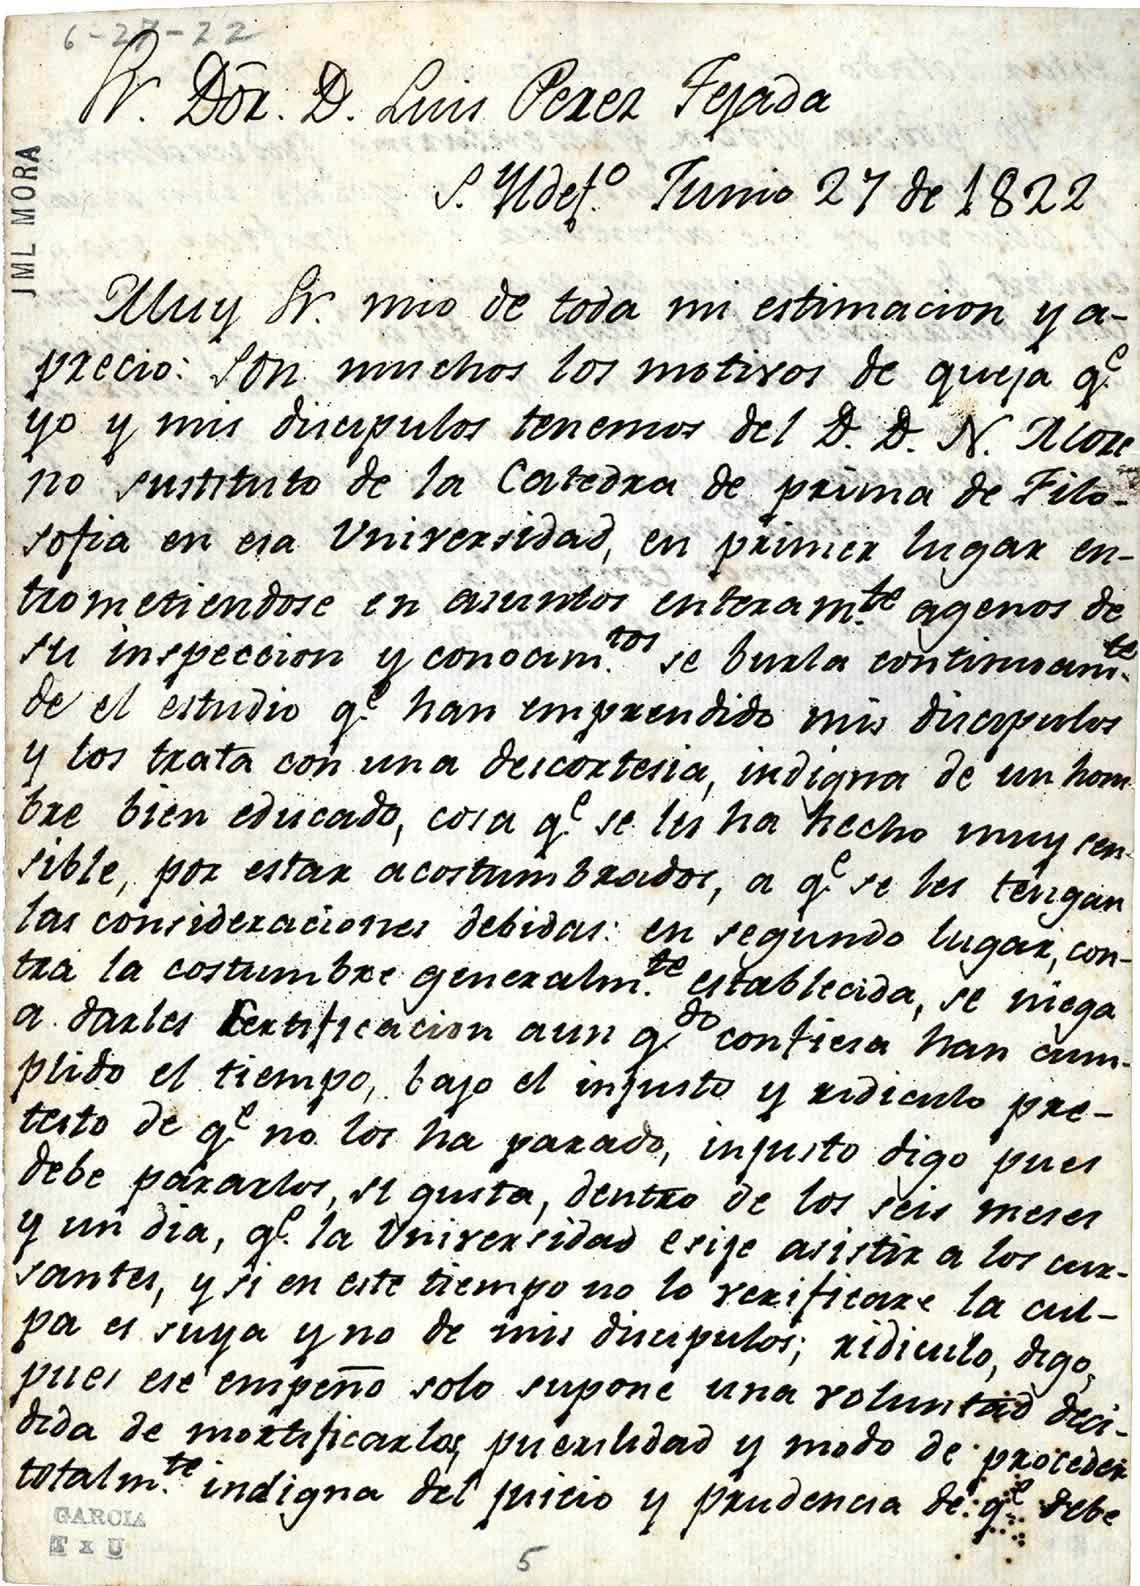 6-27-22
Sr. Dōr. D. Luis Perez Tejada
S. Yldef.º Junio 27 de 1822
JML MORA
Muy Sr. mio de toda mi estimacion y a-
precio: son muchos los motivos de queja q.e
yo y mis discipulos tenemos del D. D. N. More
no sustituto de la Catedra de prima de Filo-
sofia en esa Universidad, en primer lugar en-
trometiendose en asuntos enteram.te agenos de
su inspeccion y conocim.tos se burla continuam.te
de el estudio q.e han emprendido mis discipulos
y los trata con una descortesia, indigna de un hom
bre bien educado, cosa q.e se les ha hecho muy sen-
sible, por estar acostumbrados, a q.e se les tengan
las consideraciones debidas: en segundo lugar, con-
tra la costumbre generalm.te establecida, se niega
a darles Certificacion aun q.do confiesa han cum-
plido el tiempo, bajo el injusto y ridiculo pre-
testo de q.e no los ha parado, injusto digo pues
debe pararlos, si gusta, dentro de los seis meses
y un dia, q.e la Universidad esije asistir a los cur-
santes, y si en este tiempo no lo verificare la cul-
pa es suya y no de mis discipulos; ridiculo, digo,
pues ese empeño solo supone una voluntad deci-
dida de mortificarlos, puerilidad y modo de proceder
totalm.te indigna del juicio y prudencia de q.e debe
GARCIA
T x U
5